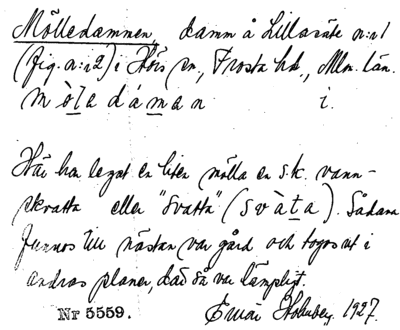 Mölledammen, damm å Lillasäte n:r 1
(fig. n:r 2) i Hörs sn, Frosta hd., Mlm. län.
mòladáman i.
Här har legat en liten mölla en s.k. vann-
skvatta eller "svatta" (svàta). Sådana
funnos till nästan var gård och togos ut i
andras planer, där så var lämpligt.
Nr 5559. Einar Holmberg. 1927.